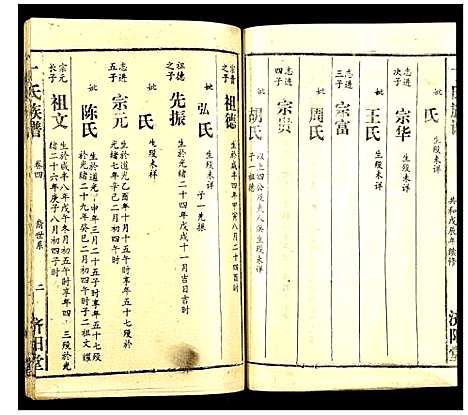 共和戊辰年续修
妣 氏 生殁未详
志进次子 宗华 生殁未详
妣 王氏 生殁未详
志进三子 宗富 生殁未详
妣 周氏 生殁未详
志进四子 宗贤
妣 胡氏 以上四公及夫人俱生殁未详
子一祖德
宗贵之子 祖德 生於咸丰四年甲寅八月二十四酉时
妣 弘氏 生殁未详 子一先振
祖德之子 先振 生於光绪二十四年戊戌十一月吉日吉时
妣 氏 生殁未祥
志进之子 宗元 生於道光乙酉年十月十五午时享年五十七殁於
光绪七年辛巳二月初四午时
妣 陈氏 生於道光
年三月二十五子时享年五十五
殁於光绪二十九年癸巳二月初四子时
宗元长子 祖文 生於咸丰八年戊午冬月初五午时享年四十三殁於光
绪二十六年庚子八月初四子时
丁氏族谱 卷四 裔世系 二 济阳堂